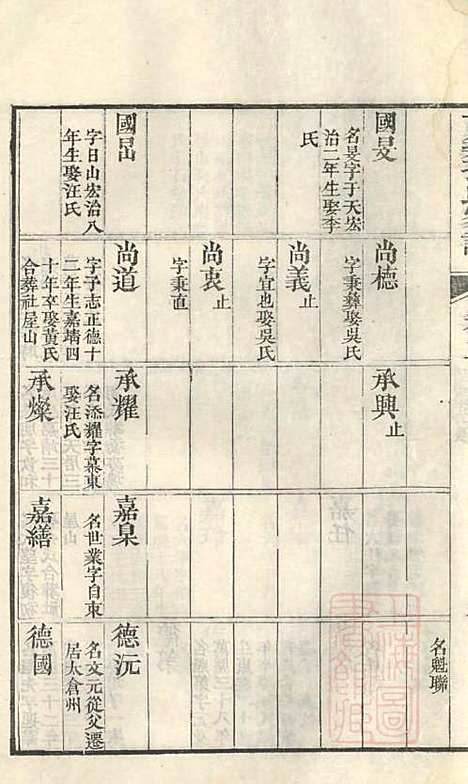 國旻
名旻字于天宏
治二年生娶李
氏
國岊
字日山宏治八
年生娶汪氏
尚德
字秉彝娶吳氏
尚義 止
字宜也娶吳氏
尚衷 止
字秉直
尚道
字子志正德十
二年生嘉靖四
十年卒娶黃氏
合葬社屋山
承興 止
承耀
名添耀字慕東
娶汪氏
承燦
嘉臬
名世業字自東
嘉繕
名魁聯
德沅
名文元從父遷
居太倉州
德國